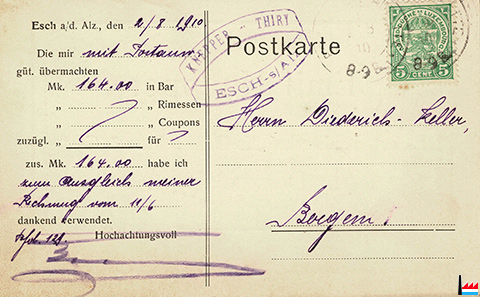 Esch a/d. Alz., den 2/8 1910
Die mir mit Postanw.
güt. übermachten
Mk. 164.00 in Bar
„ Rimessen
„ Coupons
zuzügl. „ für
zus. Mk. 164.00 habe ich
zum Ausgleich meiner
Rechnung vom 11/6
dankend verwendet.
Hochachtungsvoll
KNEPPER - THIRY
ESCH-s/Alz
Postkarte
GRAND DUCHÉ DE LUXEMBOURG
5 CENT. 5
8-9
8-9
Herrn Diederich-Keller,
Bergem